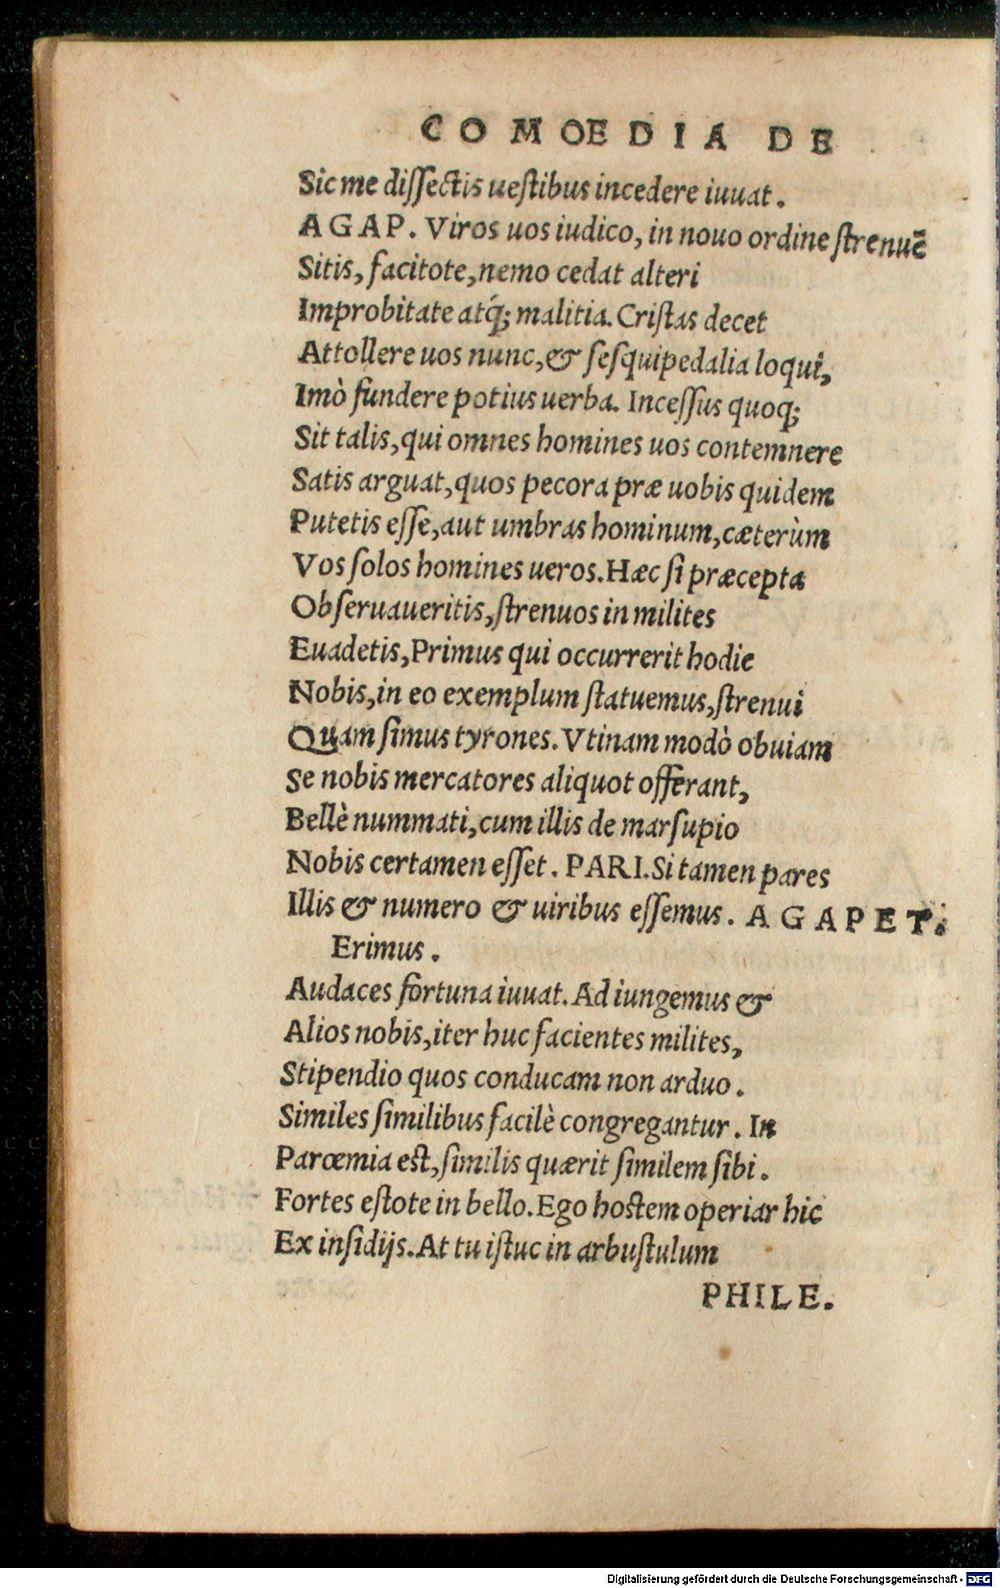 COMOEDIA DE
Sic me dissectis uestibus incedere iuuat.
AGAP. Viros uos iudico, in nouo ordine strenuẽ
Sitis, facitote, nemo cedat alteri
Improbitate atq́; malitia. Cristas decet
Attollere uos nunc, & sesquipedalia loqui,
Imò fundere potius uerba. Incessus quoq;
Sit talis, qui omnes homines uos contemnere
Satis arguat, quos pecora præ uobis quidem
Putetis esse, aut umbras hominum, cæterùm
Vos solos homines ueros. Hæc si præcepta
Obseruaueritis, strenuos in milites
Euadetis, Primus qui occurrerit hodie
Nobis, in eo exemplum statuemus, strenui
Quam simus tyrones. Vtinam modò obuiam
Se nobis mercatores aliquot offerant,
Bellè nummati, cum illis de marsupio
Nobis certamen esset. PARI. Si tamen pares
Illis & numero & uiribus essemus. AGAPET.
Erimus.
Audaces fortuna iuuat. Ad iungemus &
Alios nobis, iter huc facientes milites,
Stipendio quos conducam non arduo.
Similes similibus facilè congregantur. In
Parœmia est, similis quærit similem sibi.
Fortes estote in bello. Ego hostem operiar hic
Ex insidijs. At tu istuc in arbustulum
PHILE.
Digitalisierung gefördert durch die Deutsche Forschungsgemeinschaft - DFG